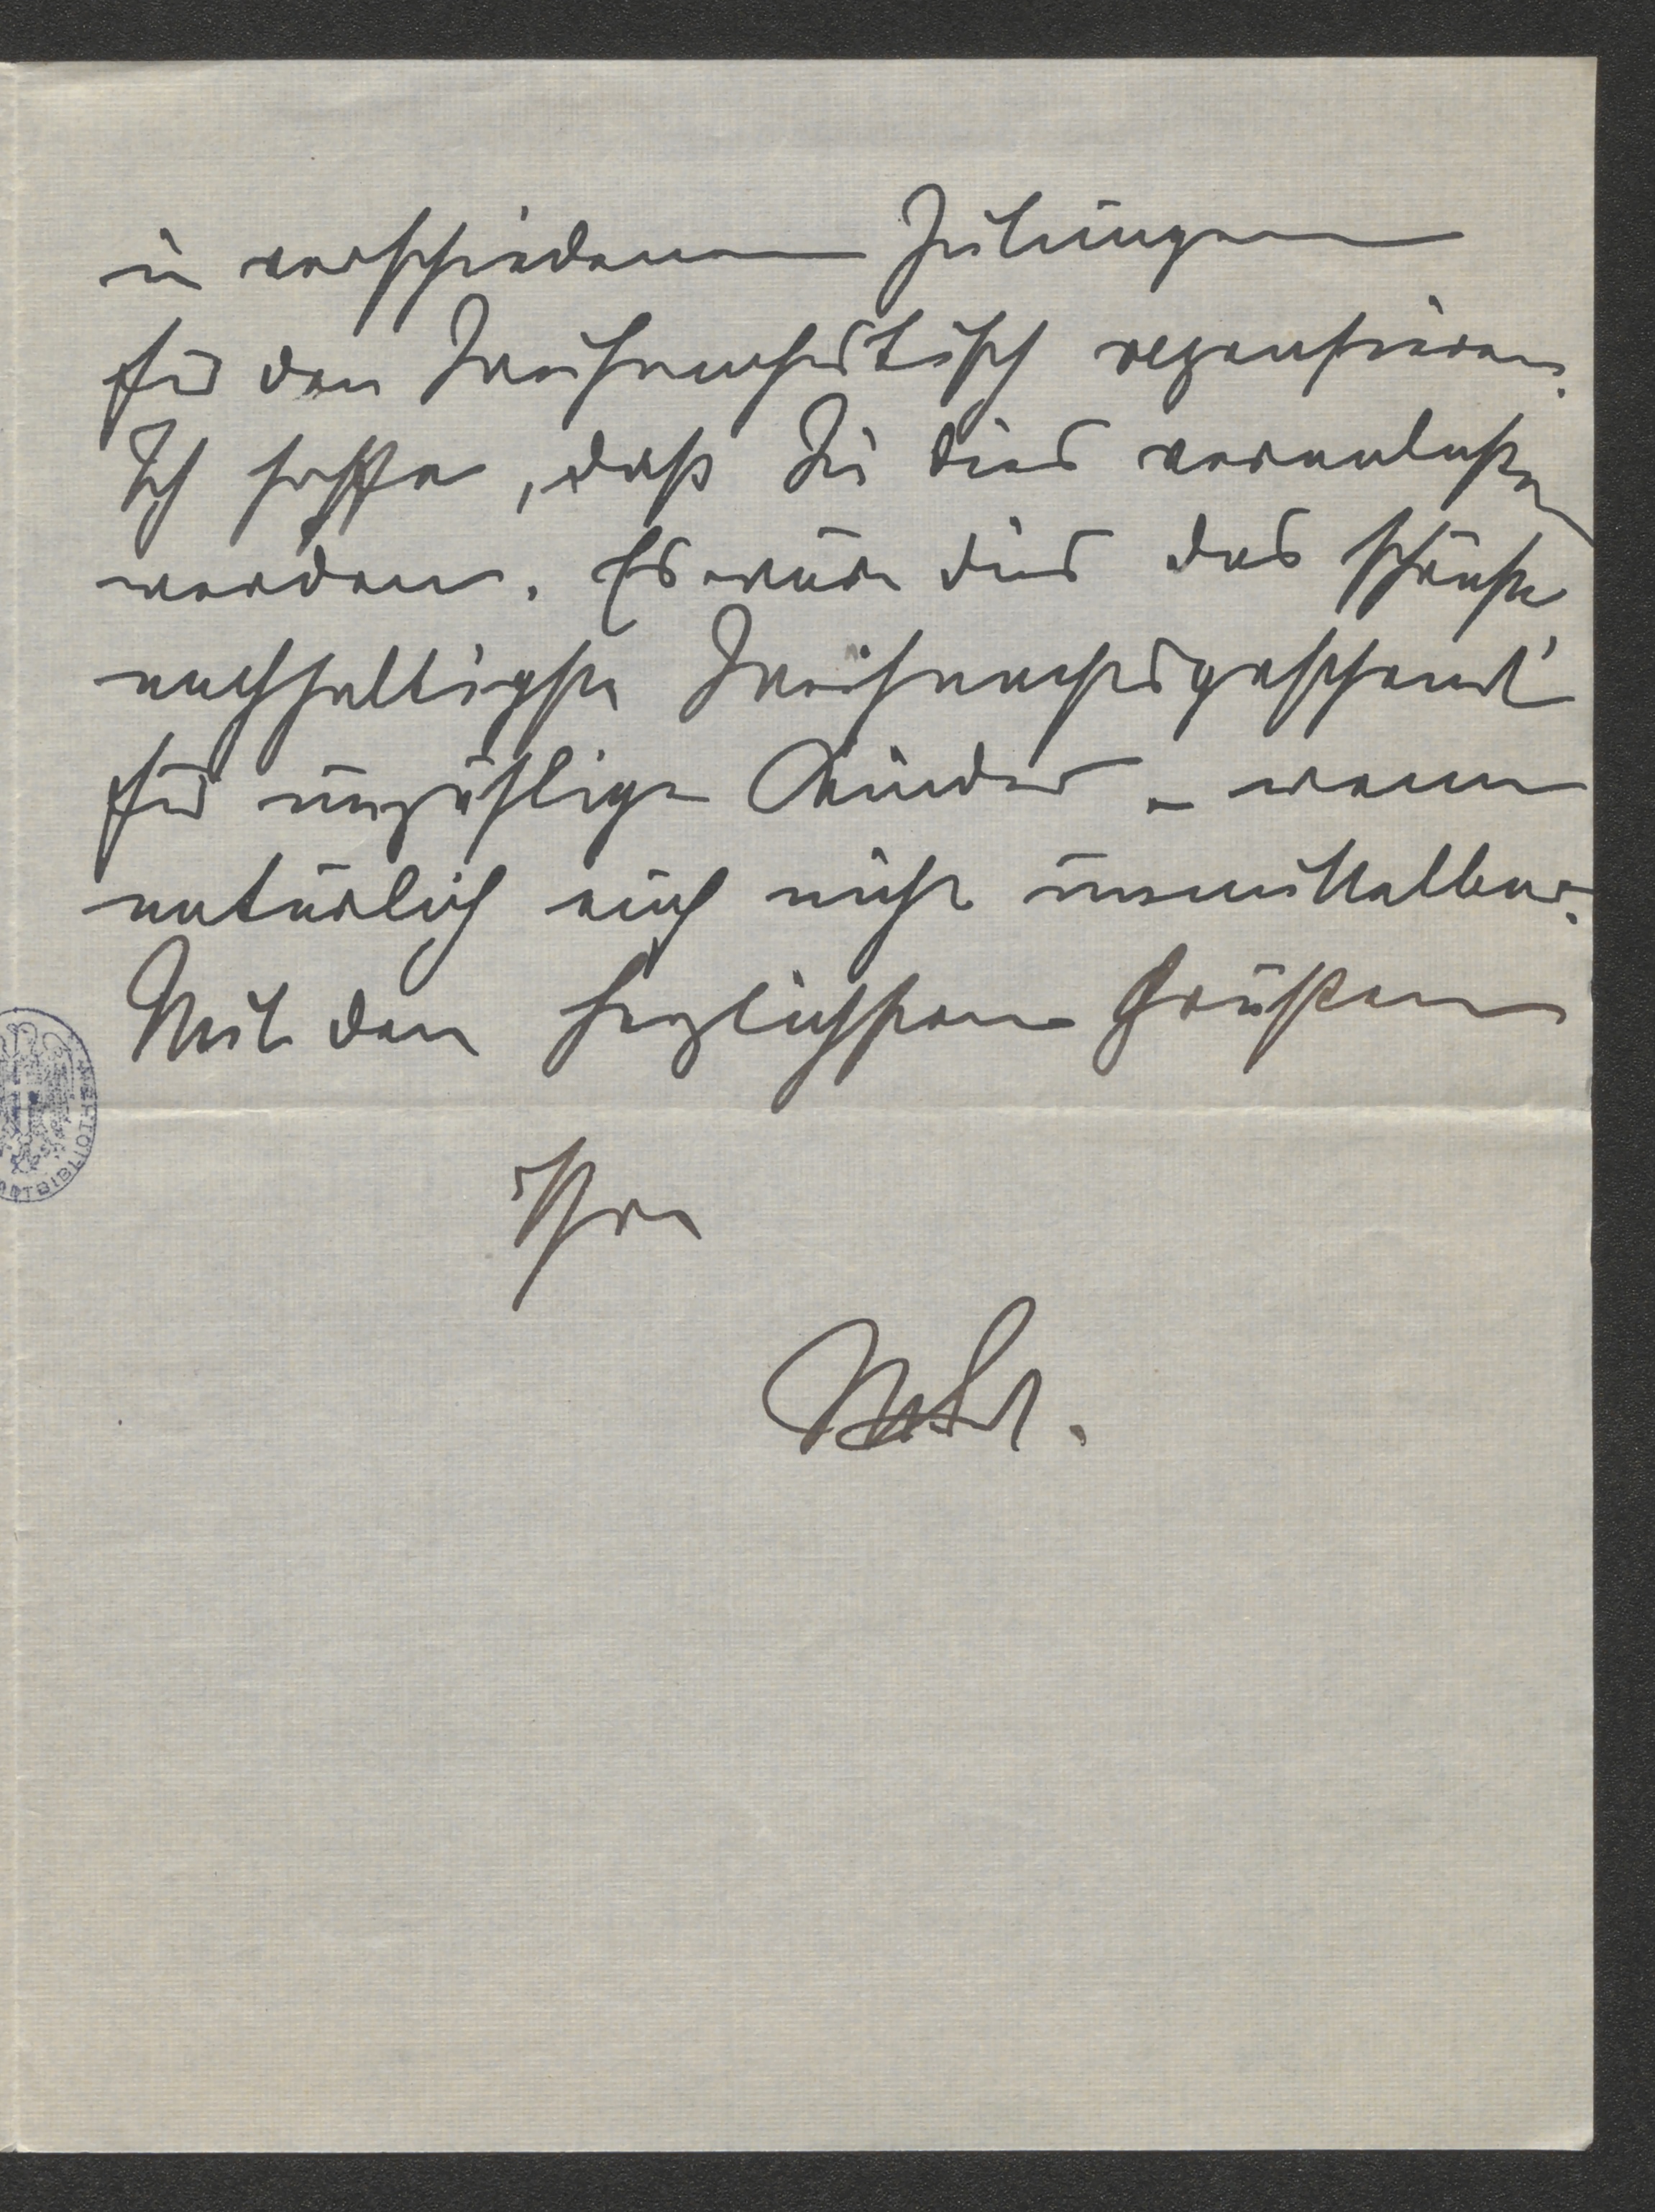 in verschiedenen Zeitungen
für den Weihnachtstisch rezensieren.
Ich hoffe, daß Sie dies veranlaßen
werden. Es wäre dies das schönste
nachhaltigste Weihnachtsgeschenk
für unzählige Kinder – wenn
natürlich auch nicht unmittelbar.
Mit den herzlichsten Grüßen
Ihr